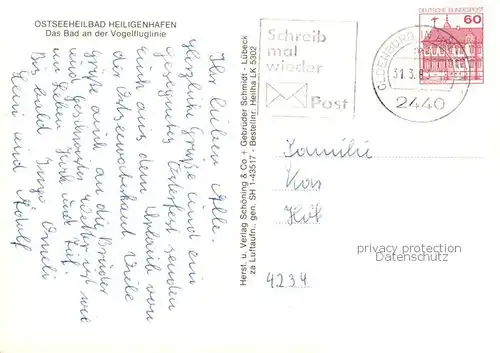 OSTSEEHEILBAD HEILIGENHAFEN
Das Bad an der Vogelfluglinie
Ihr lieben Alle.
Herzliche Grüße und ein
gesegnetes Osterfest senden
Euch aus dem Urlaub von
der Ostseewaterkant. Viele
Grüße auch an die Brüder
und Geschwister. Wetter ist wie
im Leben. Hoch und Tief.
Bis bald
und Adolf
Herst. u. Verlag Schöning & Co + Gebrüder Schmidt - Lübeck
za Luftaufn., gen. SH 1-43517 - Bestellnr. Heilha LK 5302
Schreib
mal
wieder
Post
OLDENBURG
31.3.8
2440
DEUTSCHE BUNDESPOST
60
Familie
4234
privacy protection
Datenschutz